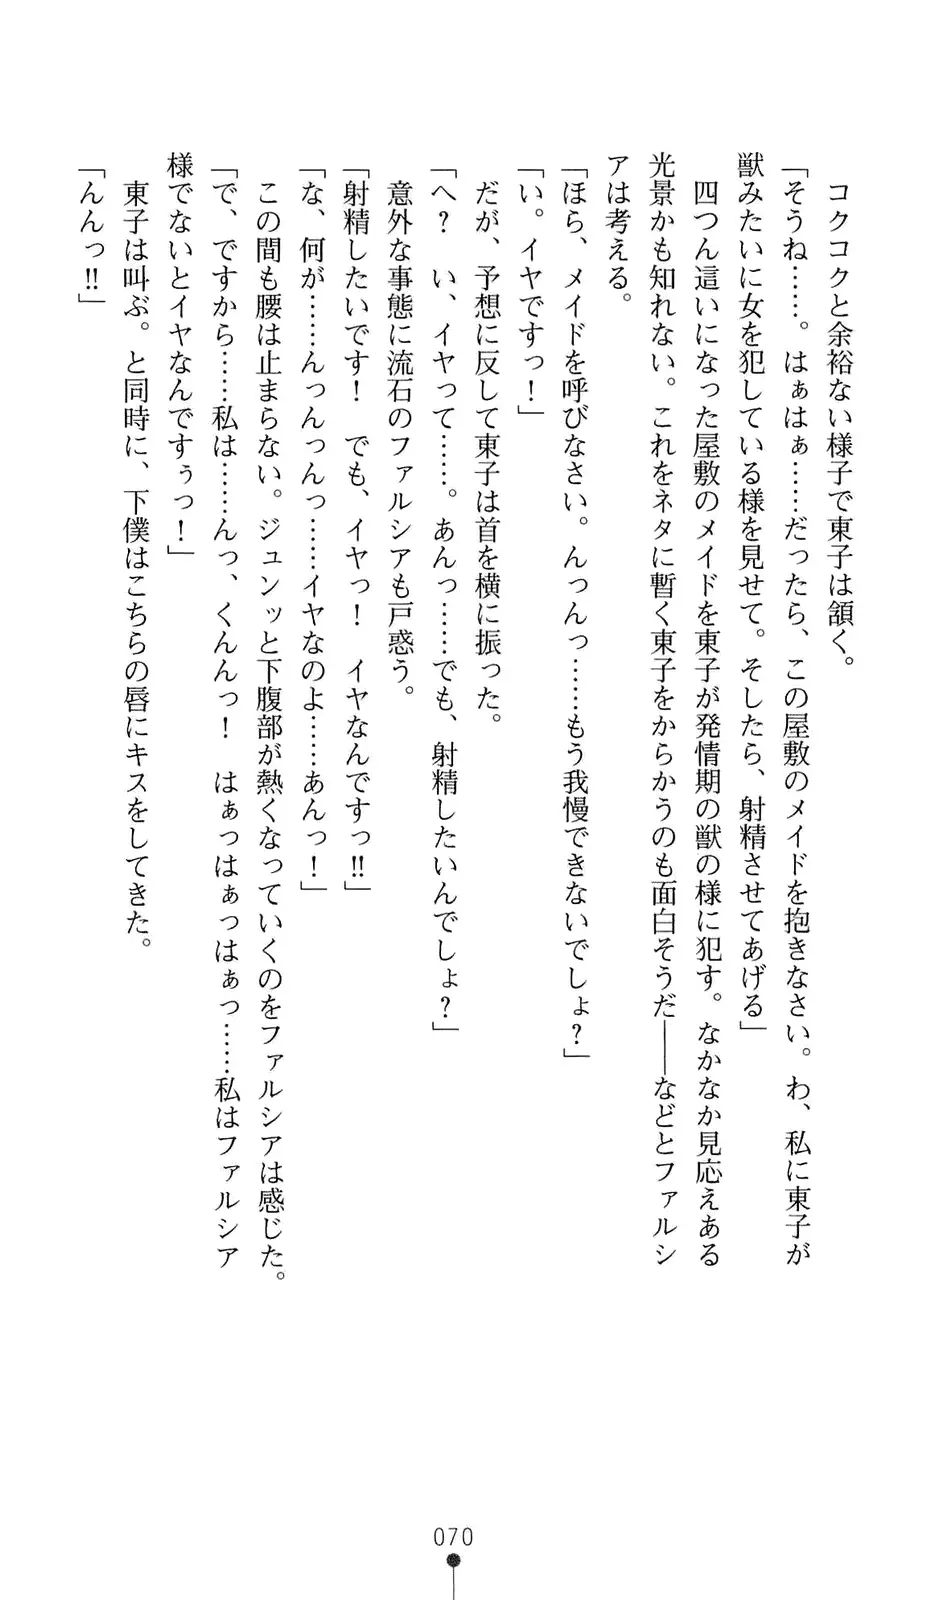 コクコクと余裕ない様子で東子は頷く。
「そうね……。はぁはぁ……だったら、この屋敷のメイドを抱きなさい。わ、私に東子が
獣みたいに女を犯している様を見せて。そしたら、射精させてあげる」
四つん這いになった屋敷のメイドを東子が発情期の獣の様に犯す。なかなか見応えある
光景かも知れない。これをネタに暫く東子をからかうのも面白そうだ――などとファルシ
アは考える。
「ほら、メイドを呼びなさい。んっんっ……もう我慢できないでしょ？」
「い。イヤですっ！」
だが、予想に反して東子は首を横に振った。
「へ？　い、イヤって……。あんっ……でも、射精したいんでしょ？」
意外な事態に流石のファルシアも戸惑う。
「射精したいです！　でも、イヤっ！　イヤなんですっ!!」
「な、何が……んっんっんっ……イヤなのよ……あんっ！」
この間も腰は止まらない。ジュンッと下腹部が熱くなっていくのをファルシアは感じた。
「で、ですから……私は……んっ、くんんっ！　はぁっはぁっはぁっ……私はファルシア
様でないとイヤなんですぅっ！」
東子は叫ぶ。と同時に、下僕はこちらの唇にキスをしてきた。
「んんっ!!」
070